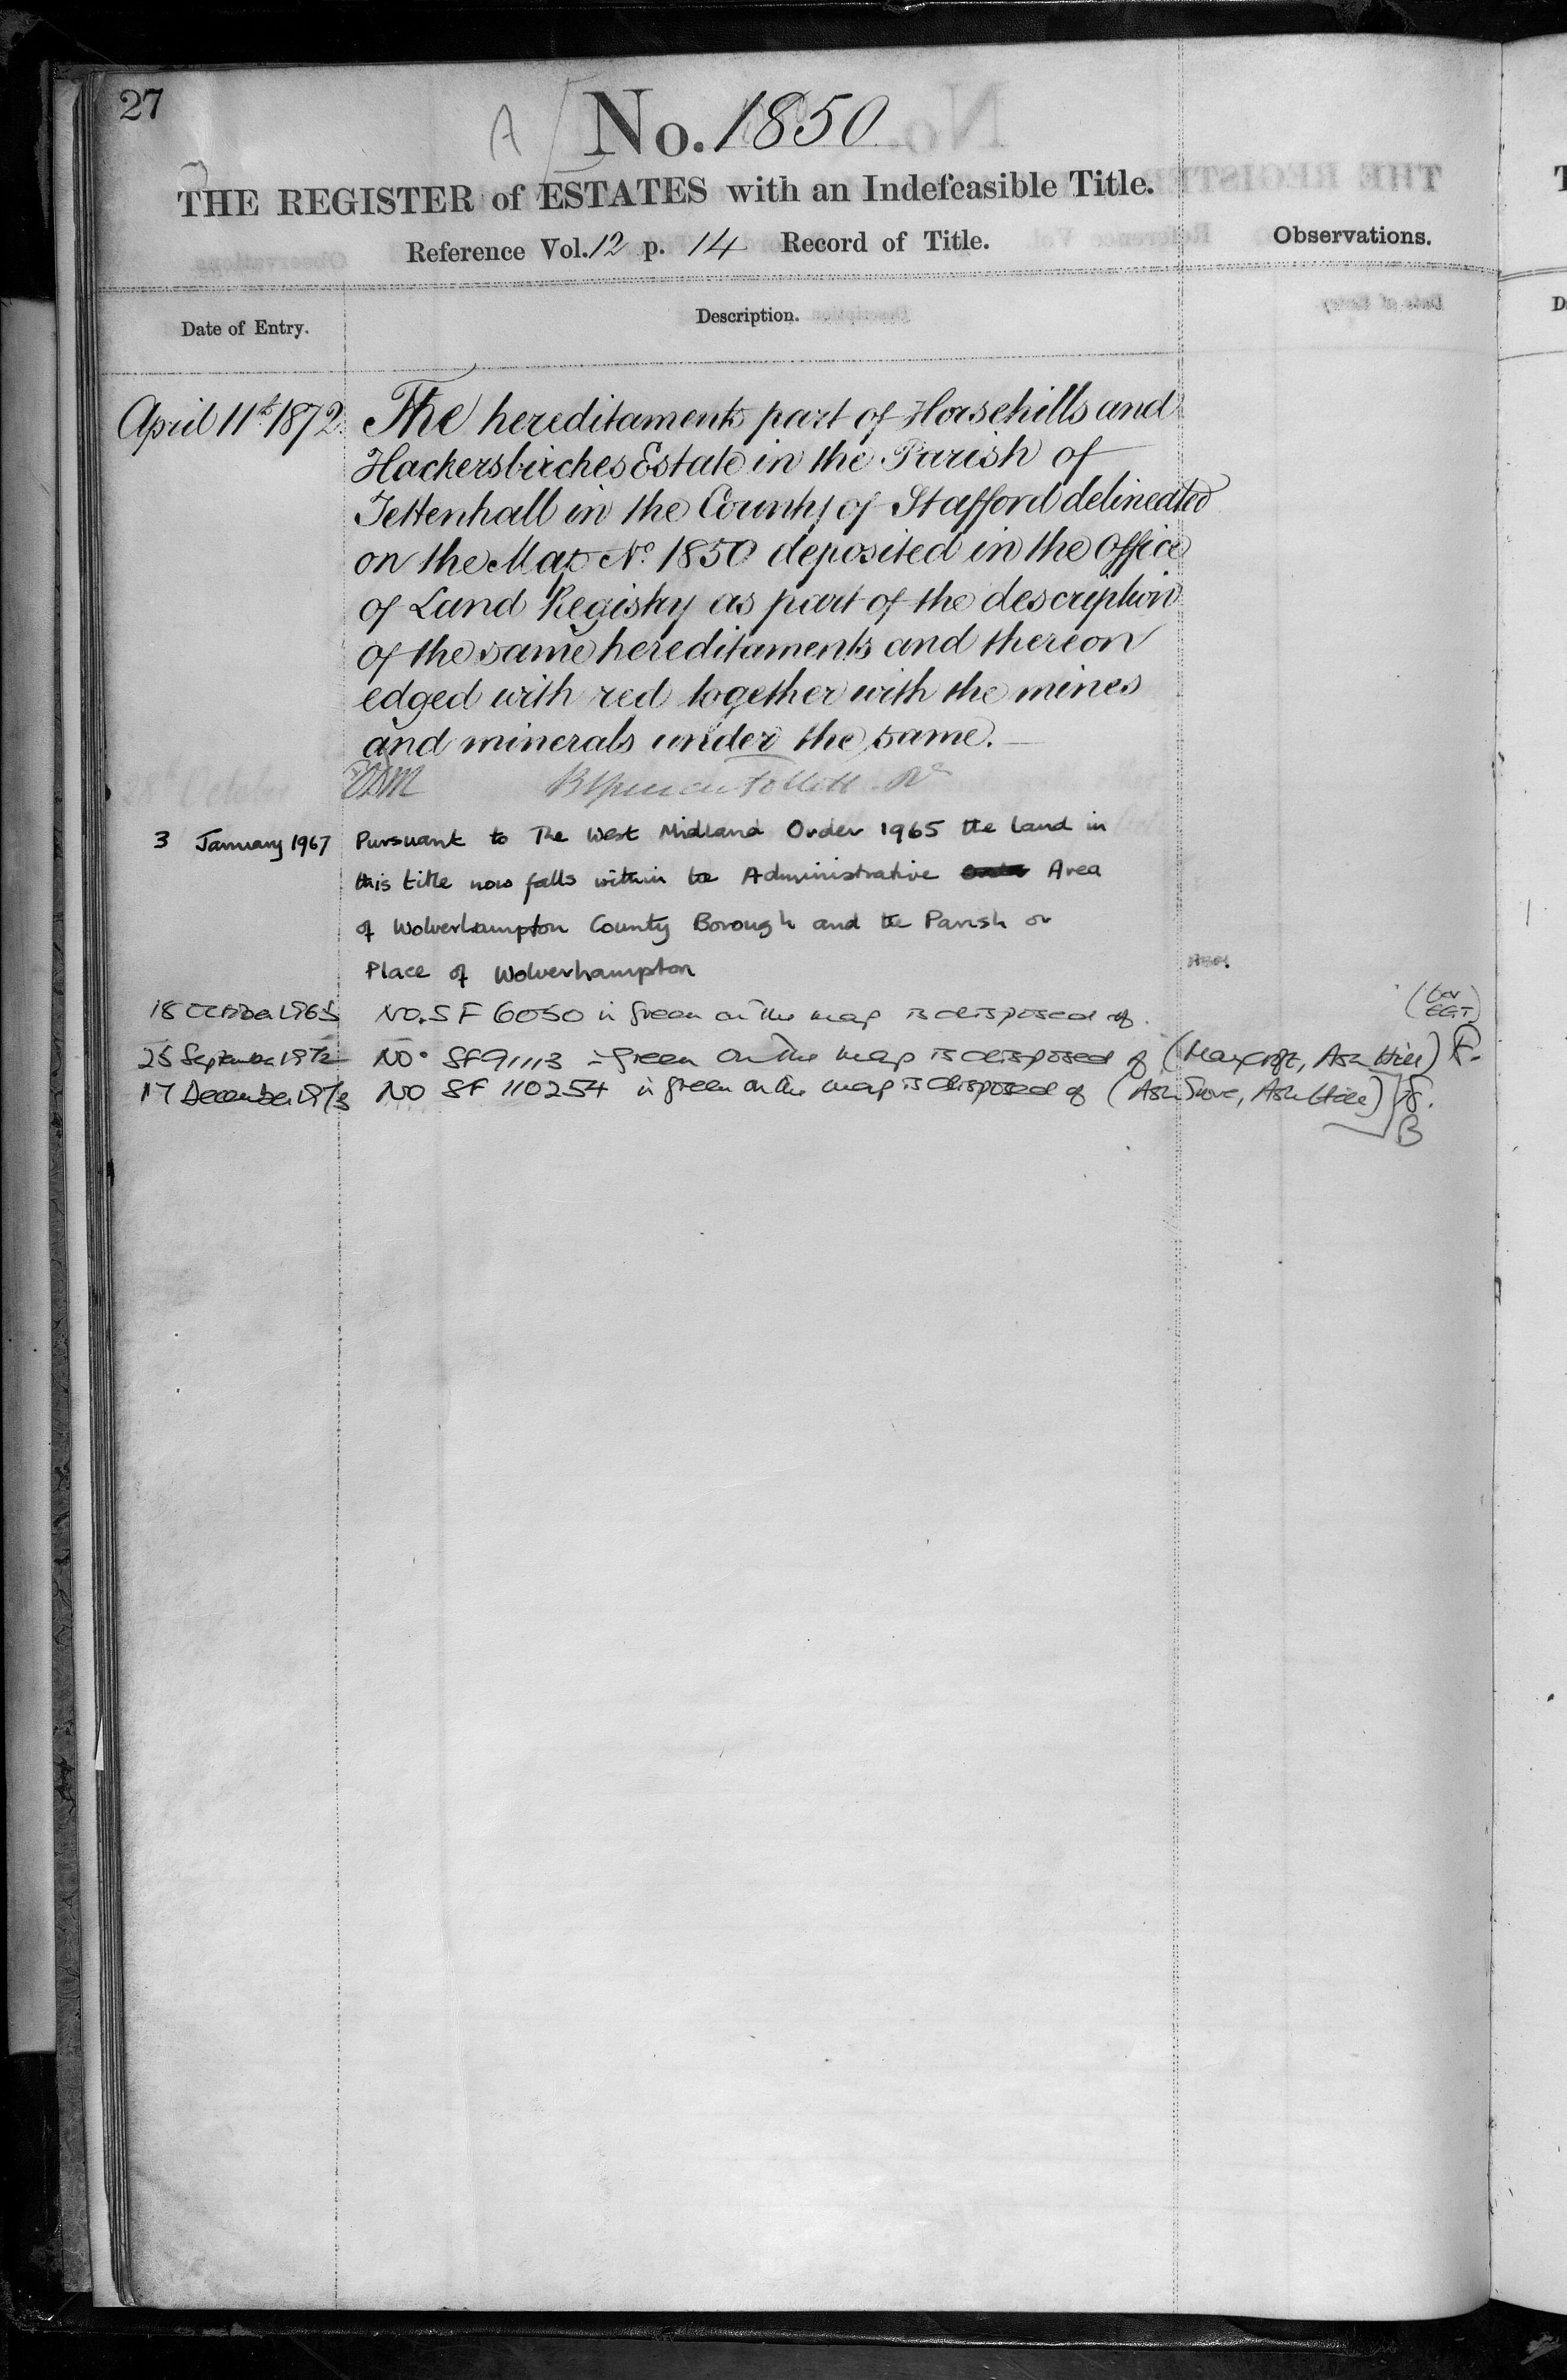 27
A
No. 1850
THE REGISTER of ESTATES with an Indefeasible Title.
Reference Vol. 12 p. 14 Record of Title.
Observations.
Date of Entry.
Description.
April 11th 1872. The hereditaments part of Horsehills and
Hackersbirches Estate in the Parish of
Tettenhall in the County of Stafford delineated
on the Map No. 1850 deposited in the Office
of Land Registry as part of the description
of the same hereditaments and thereon
edged with red together with the mines
and minerals under the same.
3 January 1967 Pursuant to The West Midland Order 1965 the land in
this title now falls within the Administrative Area
of Wolverhampton County Borough and the Parish or
Place of Wolverhampton
18 October 1965 NO. SF 6050 in green on the map is disposed of.
25 September 1972 NO. SF91113 in green on the map is disposed of (Maycroft, Ash Hill)
17 December 1973 NO SF 110254 in green on the map is disposed of (Ash Grove, Ash Hill)
B